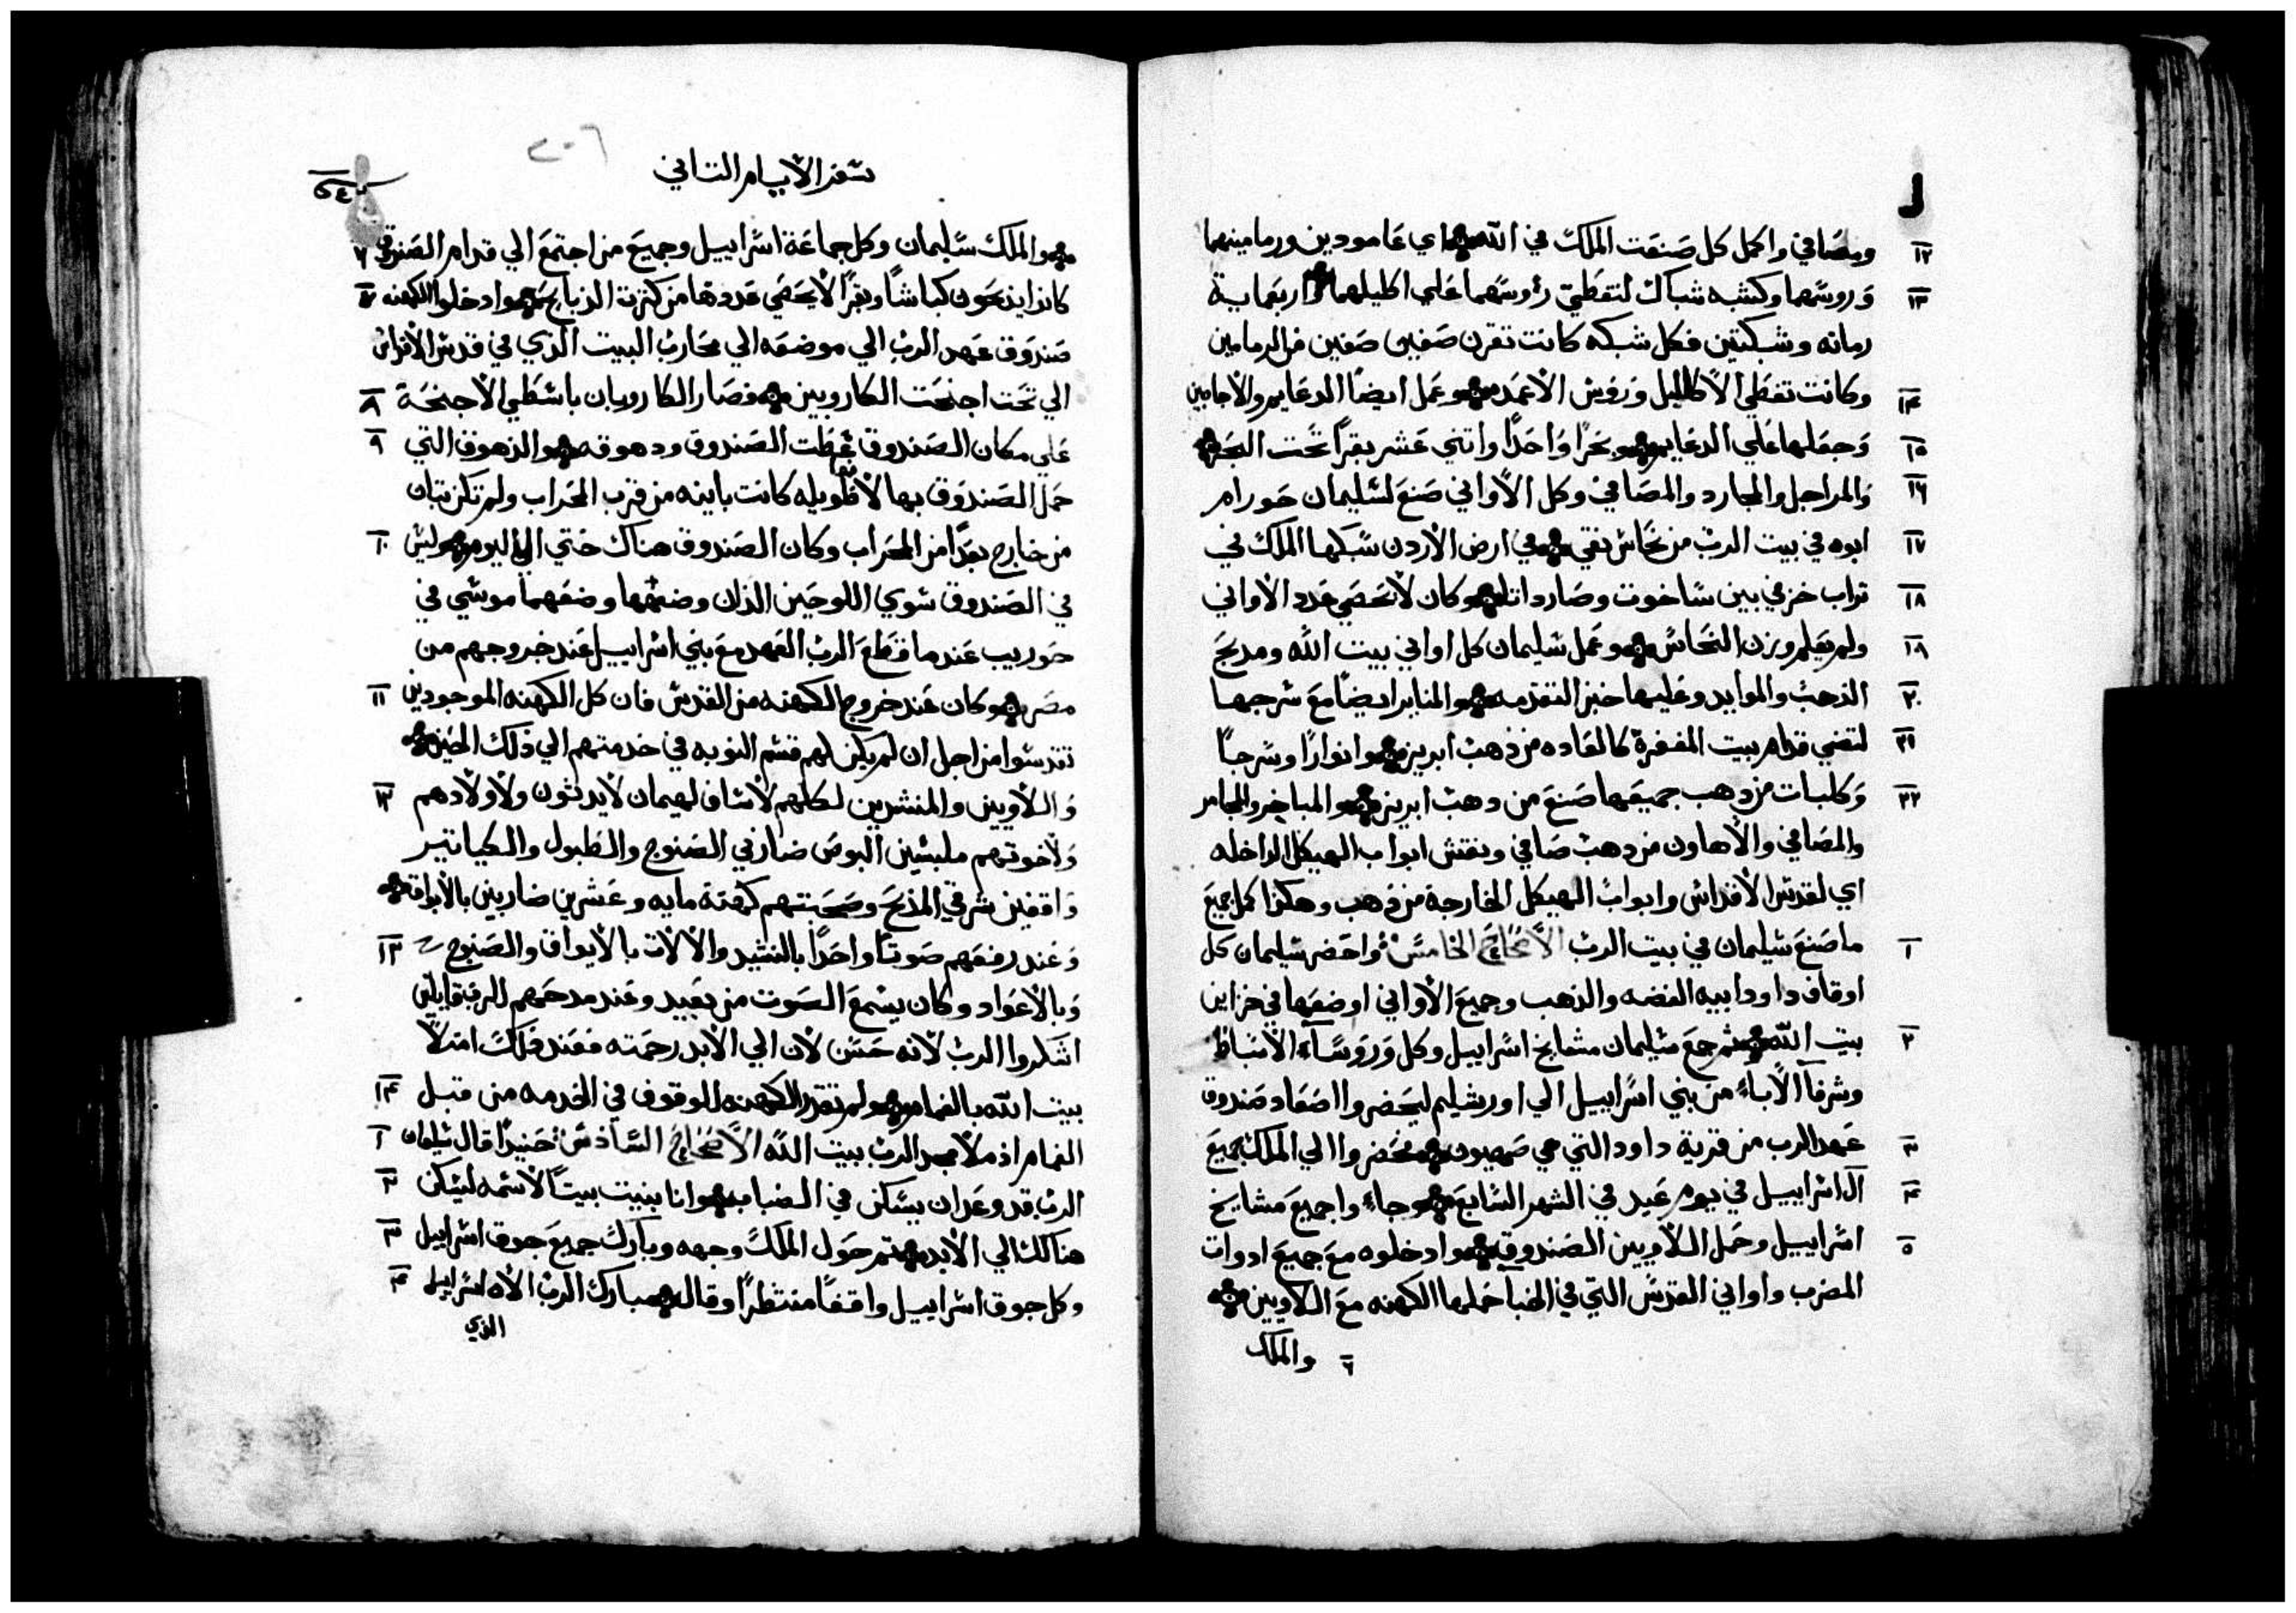 ومصافي واكمل كل صنعت الملك في الله اي عامودين ورمامينهما ١٢
وروسهما وكشبه شباك لتغطي رؤوسهما علي اكليلهما واربعماية ١٣
رمانه وشبكتين فكل شبكه كانت تقرن صفين صفين من الرمامين
وكانت تغطي الاكاليل وروس الاعمد وعمل ايضا الدعايم والاجابين ١٤
وجعلها علي الدعايم وبحرا واحدا واثني عشر بقرا تحت البحر ١٥
والمراجل والمجارد والمصافي وكل الاواني صنع لسليمان حورام ١٦
ابوه في بيت الرب من نحاس نقي في ارض الاردن سبكها الملك في ١٧
تراب خزفي بين ساخوت وصارداتا وكان لا تحصي عدد الاواني ١٨
ولم يعلم وزن النحاس وعمل سليمان كل اواني بيت الله ومدبح ١٨
الذهب والموايد وعليها خبز التقدمه والمناير ايضا مع سرجها ٢٠
لتضي قدام بيت المغفرة كالعاده من ذهب ابريز وانوارا وسرجا ٢١
وكلبات من دهب جميعها صنع من دهب ابريز والمباخر والمجامر ٢٢
والمصافي والاهاون من دهب صافي ونقش ابواب الهيكل الداخله
اي لقدس الاقداس وابواب الهيكل الخارجة من ذهب وهكذا كمل جميع
ما صنع سليمان في بيت الرب الاصحاح الخامس واحضر سليمان كل ١
اوقاف داود ابيه الفضه والذهب وجميع الاواني اوضعها في خزاين
بيت الله ثم جمع سليمان مشايخ اسراييل وكل وروساء الاسباط ٢
وشرفآ الاباء من بني اسراييل الي اورشليم ليحضروا اصعاد صندوق
عهد الرب من قرية داود التي هي صهيون فحضروا الي الملك جميع ٣
آل اسراييل في يوم عيد في الشهر السابع وجاء واجميع مشايخ ٤
اسراييل وحمل اللاويين الصندوق وادخلوه مع جميع ادوات ٥
المضرب واواني القدس التي في الخبا حملها الكهنه مع اللاويين
٦ والملك
سفر الايام الثاني
٢٠٦
والملك سليمان وكل جماعة اسراييل وجميع من اجتمع الي قدام الصندوق ٦
كانوا يذبحون كباشا وبقرا لا يحصي عددها من كثرت الذبايح وادخلوا الكهنه ٧
صندوق عهد الرب الي موضعه الي محارب البيت الذي في قدس الاقداس
الي تحت اجنحت الكاروبين فصار الكاروبان باسطي الاجنحة ٨
علي مكان الصندوق غطت الصندوق ودهوقه والدهوق التي ٩
حمل الصندوق بها لانها طويله كانت باينه من قرب المحراب ولم تكن تبان
من خارج بعدا من المحراب وكان الصندوق هناك حتي الي اليوم وليس ١٠
في الصندوق سوي اللوحين الذان وضعهما موسي في
حوريب عندما قطع الرب العهد مع بني اسراييل عند خروجهم من
مصر وكان عند خروج الكهنه من القدس فان كل الكهنه الموجودين ١١
تقدسوا من اجل ان لم يكن لهم قسم النوبه في خدمتهم الي ذلك الحين
واللاويين والمنشدين لكلهم لاساف لهيمان لايديثون ولاولادهم ١٢
ولاخوتهم ملبسين البوص ضاربي الصنوج والطبول والكياتير
واقفين شرقي المذبح وصحبتهم كهنة مايه وعشرين ضاربين بالابواق
وعند رفعهم صوتا واحدا بالنشيد والالات بالابواق والصنوج ١٣
وبالاعواد وكان يسمع الصوت من بعيد وعند مدحهم للرب قايلين
اشكروا الرب لانه حسن لان الي الابد رحمته فعند ذلك امتلا
بيت الله بالغمام ولم تقدر الكهنه للوقوف في الخدمه من قبل ١٤
الغمام اذ ملا مجد الرب بيت الله الاصحاح السادس حينيذ قال سليمان ١
الرب قد وعد ان يسكن في الضباب وانا بنيت بيتا لاسمه ليسكن ٢
هنالك الي الابد ثم حول الملك وجهه وبارك جميع جوق اسراييل ٣
وكل جوق اسراييل واقفا منتظرا وقال مبارك الرب الاه اسراييل ٤
الذي